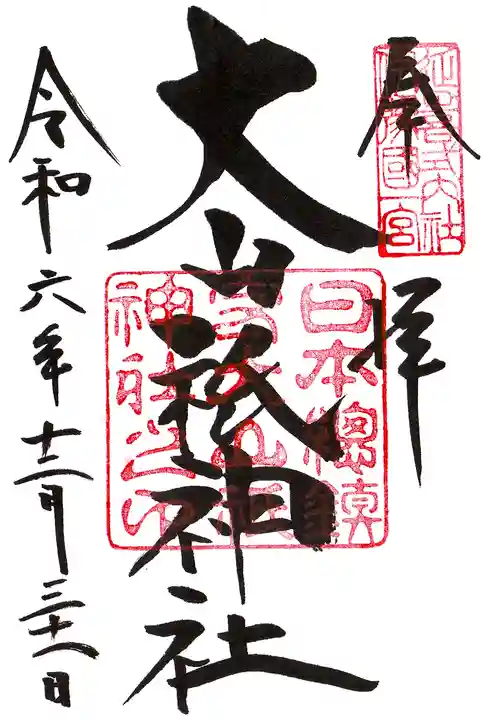 奉拝
延喜式内社
伊豫國一宮
大山祇神社
日本總鎮
守大山祇
神社之印
令和六年十二月三十一日